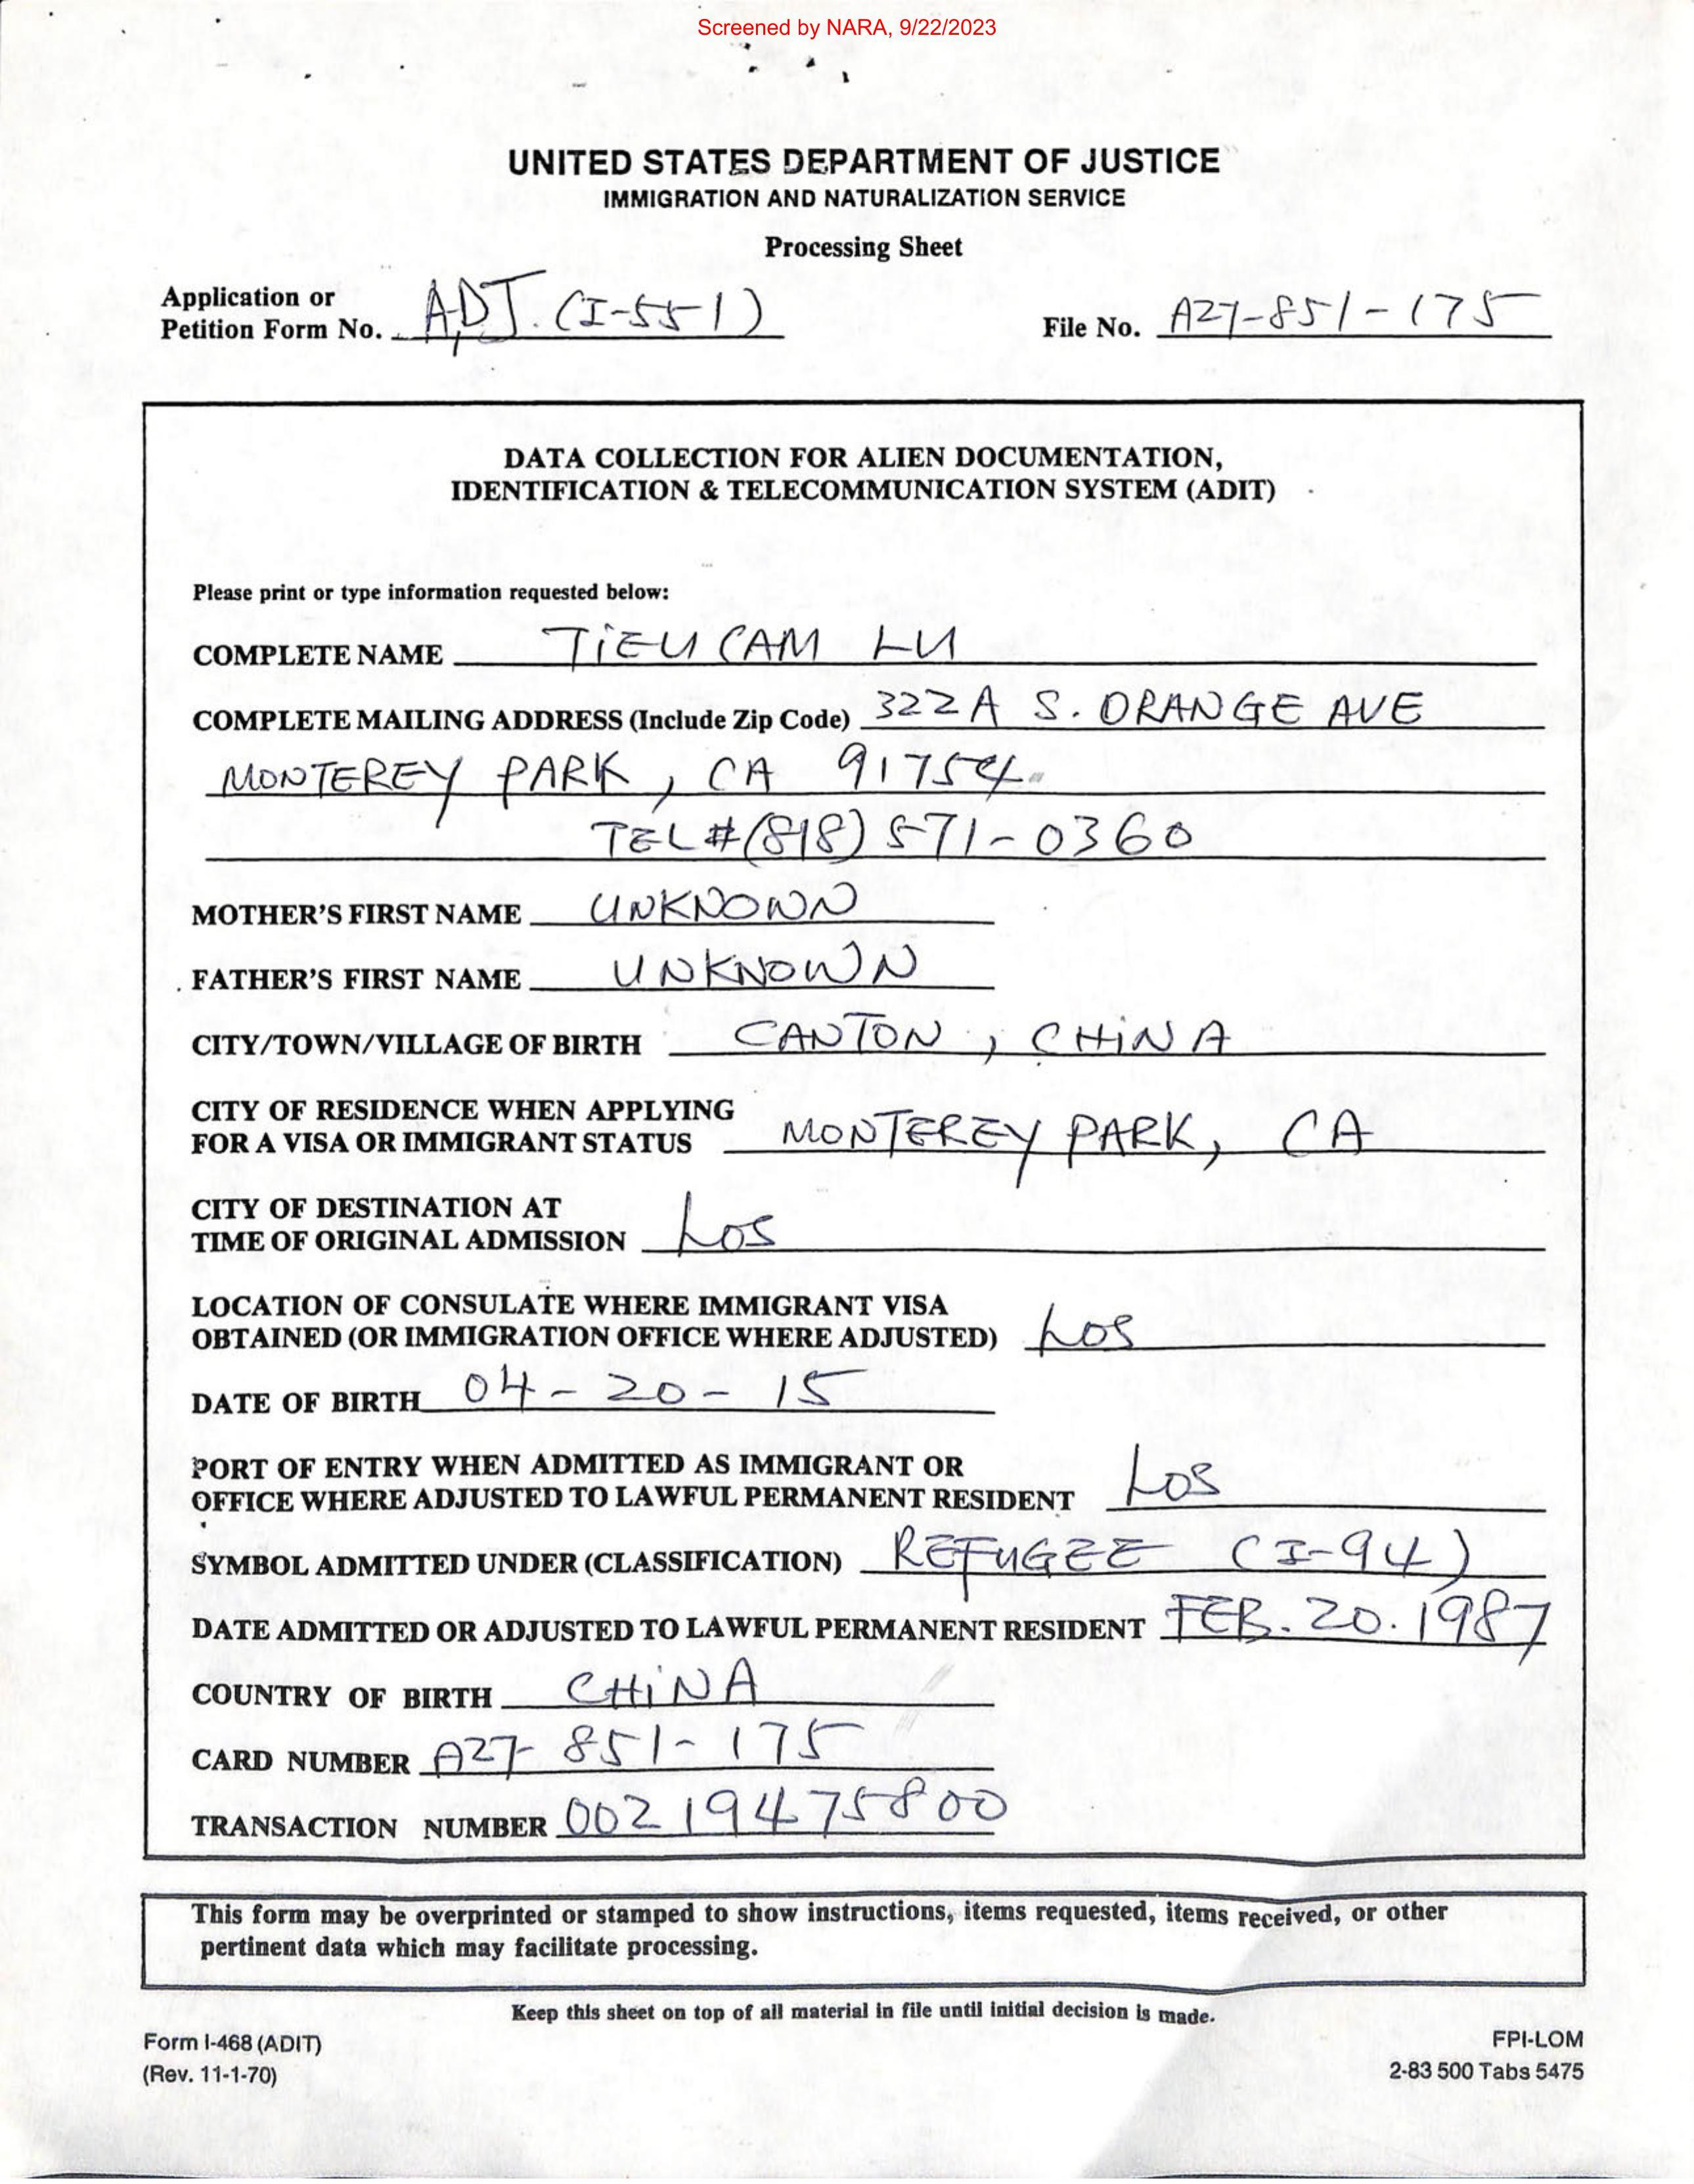 Screened by NARA, 9/22/2023
UNITED STATES DEPARTMENT OF JUSTICE
IMMIGRATION AND NATURALIZATION SERVICE
Processing Sheet
Application or
Petition Form No. ADJ. (I-551)
File No. A27-851-175
DATA COLLECTION FOR ALIEN DOCUMENTATION,
IDENTIFICATION & TELECOMMUNICATION SYSTEM (ADIT)
Please print or type information requested below:
COMPLETE NAME TIEU CAM LU
COMPLETE MAILING ADDRESS (Include Zip Code) 322A S. ORANGE AVE
MONTEREY PARK, CA 91754
TEL # (818) 571-0360
MOTHER'S FIRST NAME UNKNOWN
FATHER'S FIRST NAME UNKNOWN
CITY/TOWN/VILLAGE OF BIRTH CANTON, CHINA
CITY OF RESIDENCE WHEN APPLYING
FOR A VISA OR IMMIGRANT STATUS MONTEREY PARK, CA
CITY OF DESTINATION AT
TIME OF ORIGINAL ADMISSION LOS
LOCATION OF CONSULATE WHERE IMMIGRANT VISA
OBTAINED (OR IMMIGRATION OFFICE WHERE ADJUSTED) LOS
DATE OF BIRTH 04-20-15
PORT OF ENTRY WHEN ADMITTED AS IMMIGRANT OR
OFFICE WHERE ADJUSTED TO LAWFUL PERMANENT RESIDENT LOS
SYMBOL ADMITTED UNDER (CLASSIFICATION) REFUGEE (I-94)
DATE ADMITTED OR ADJUSTED TO LAWFUL PERMANENT RESIDENT FEB. 20. 1987
COUNTRY OF BIRTH CHINA
CARD NUMBER A27-851-175
TRANSACTION NUMBER 00219475800
This form may be overprinted or stamped to show instructions, items requested, items received, or other
pertinent data which may facilitate processing.
Keep this sheet on top of all material in file until initial decision is made.
Form I-468 (ADIT)
(Rev. 11-1-70)
FPI-LOM
2-83 500 Tabs 5475